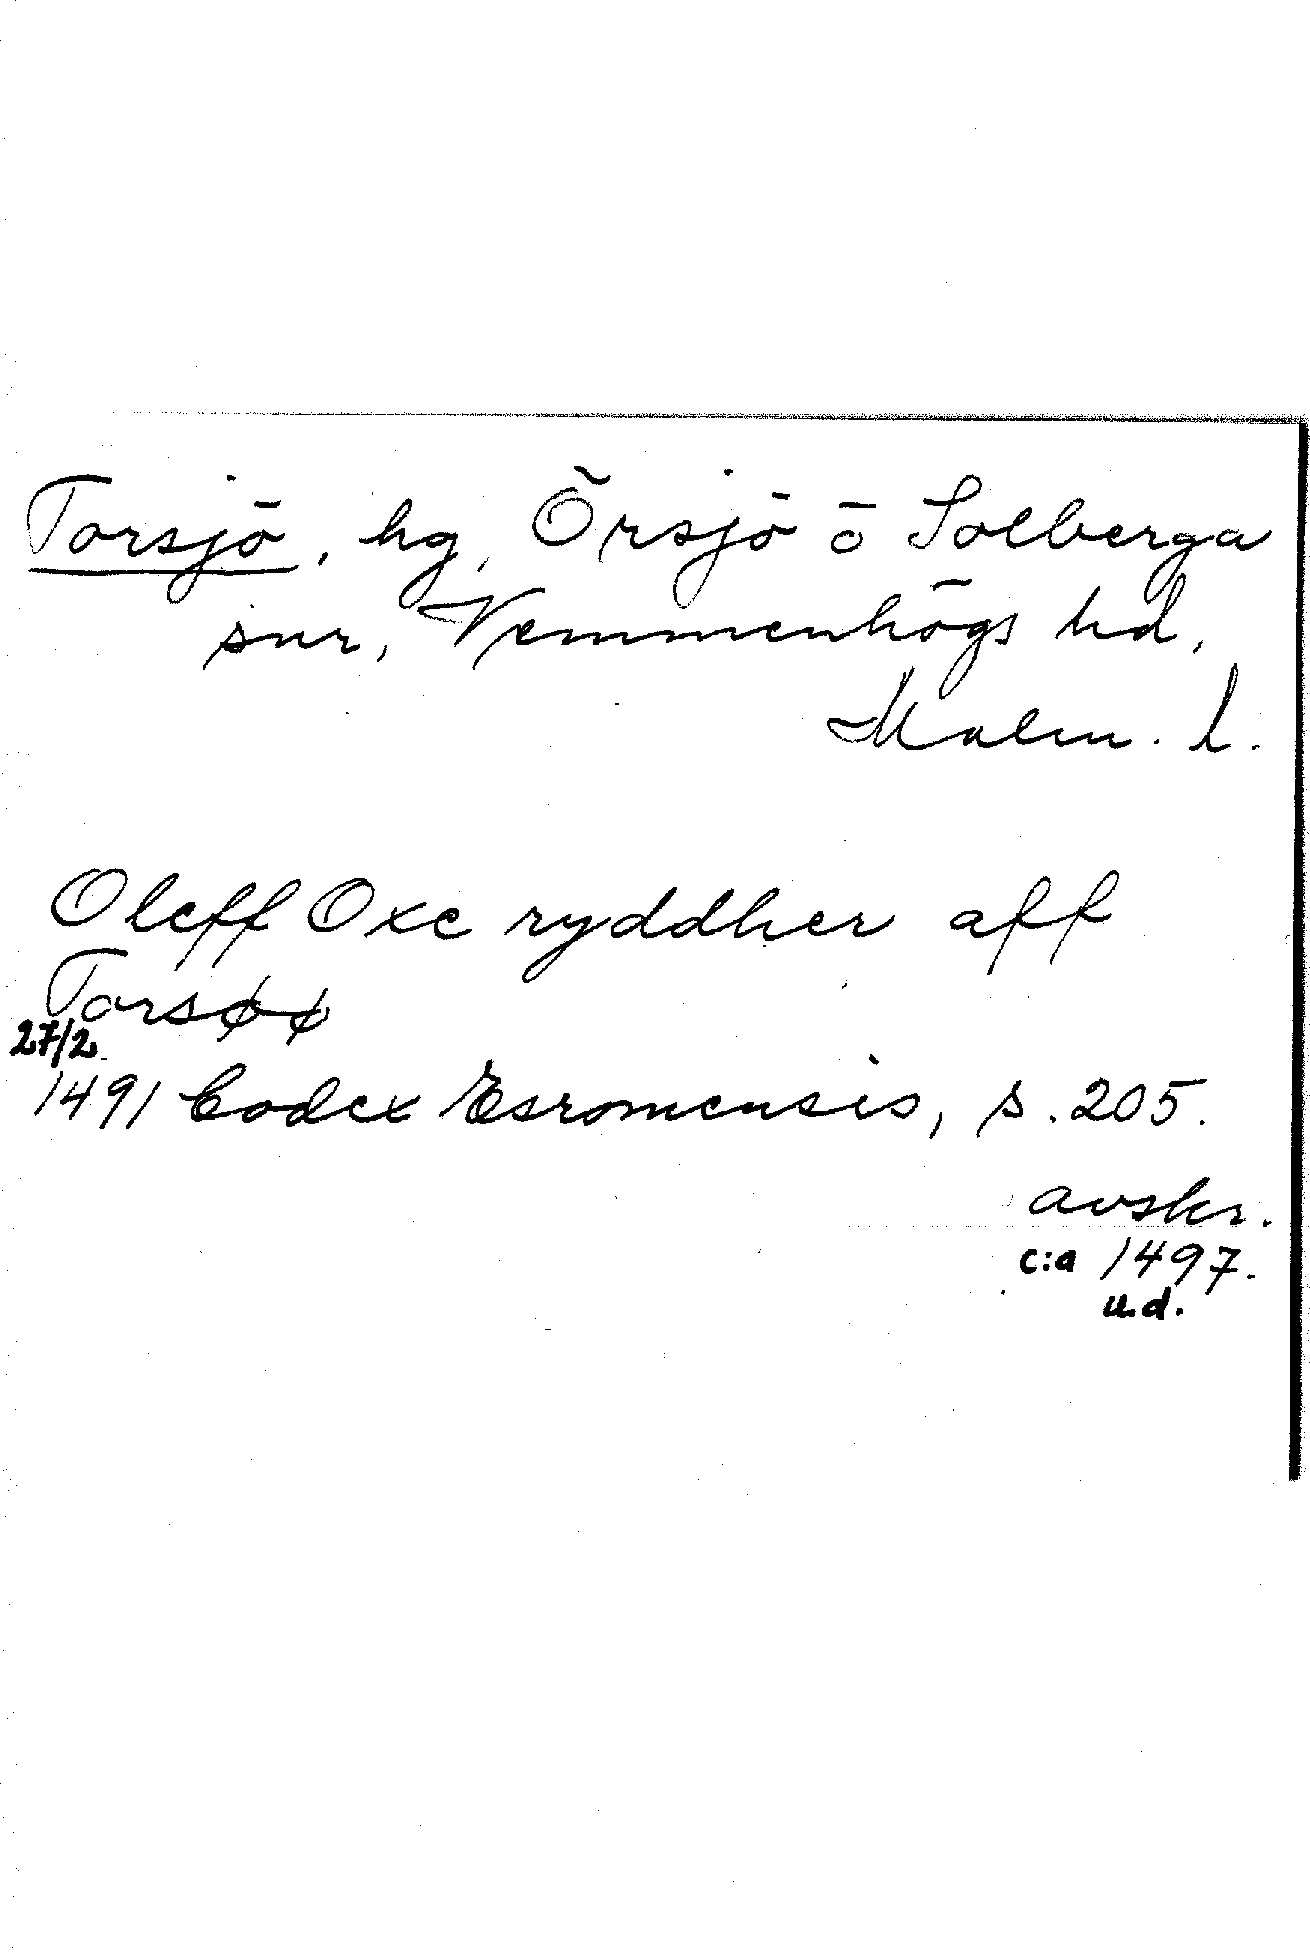 Torsjö, hg, Örsjö o Solberga
snr, Vemmenhögs hd,
Malm. l.
Oleff Oxe ryddher aff
Torsøø
27/2
1491 Codex Esromensis, s. 205.
avskr.
c:a 1497.
u.d.